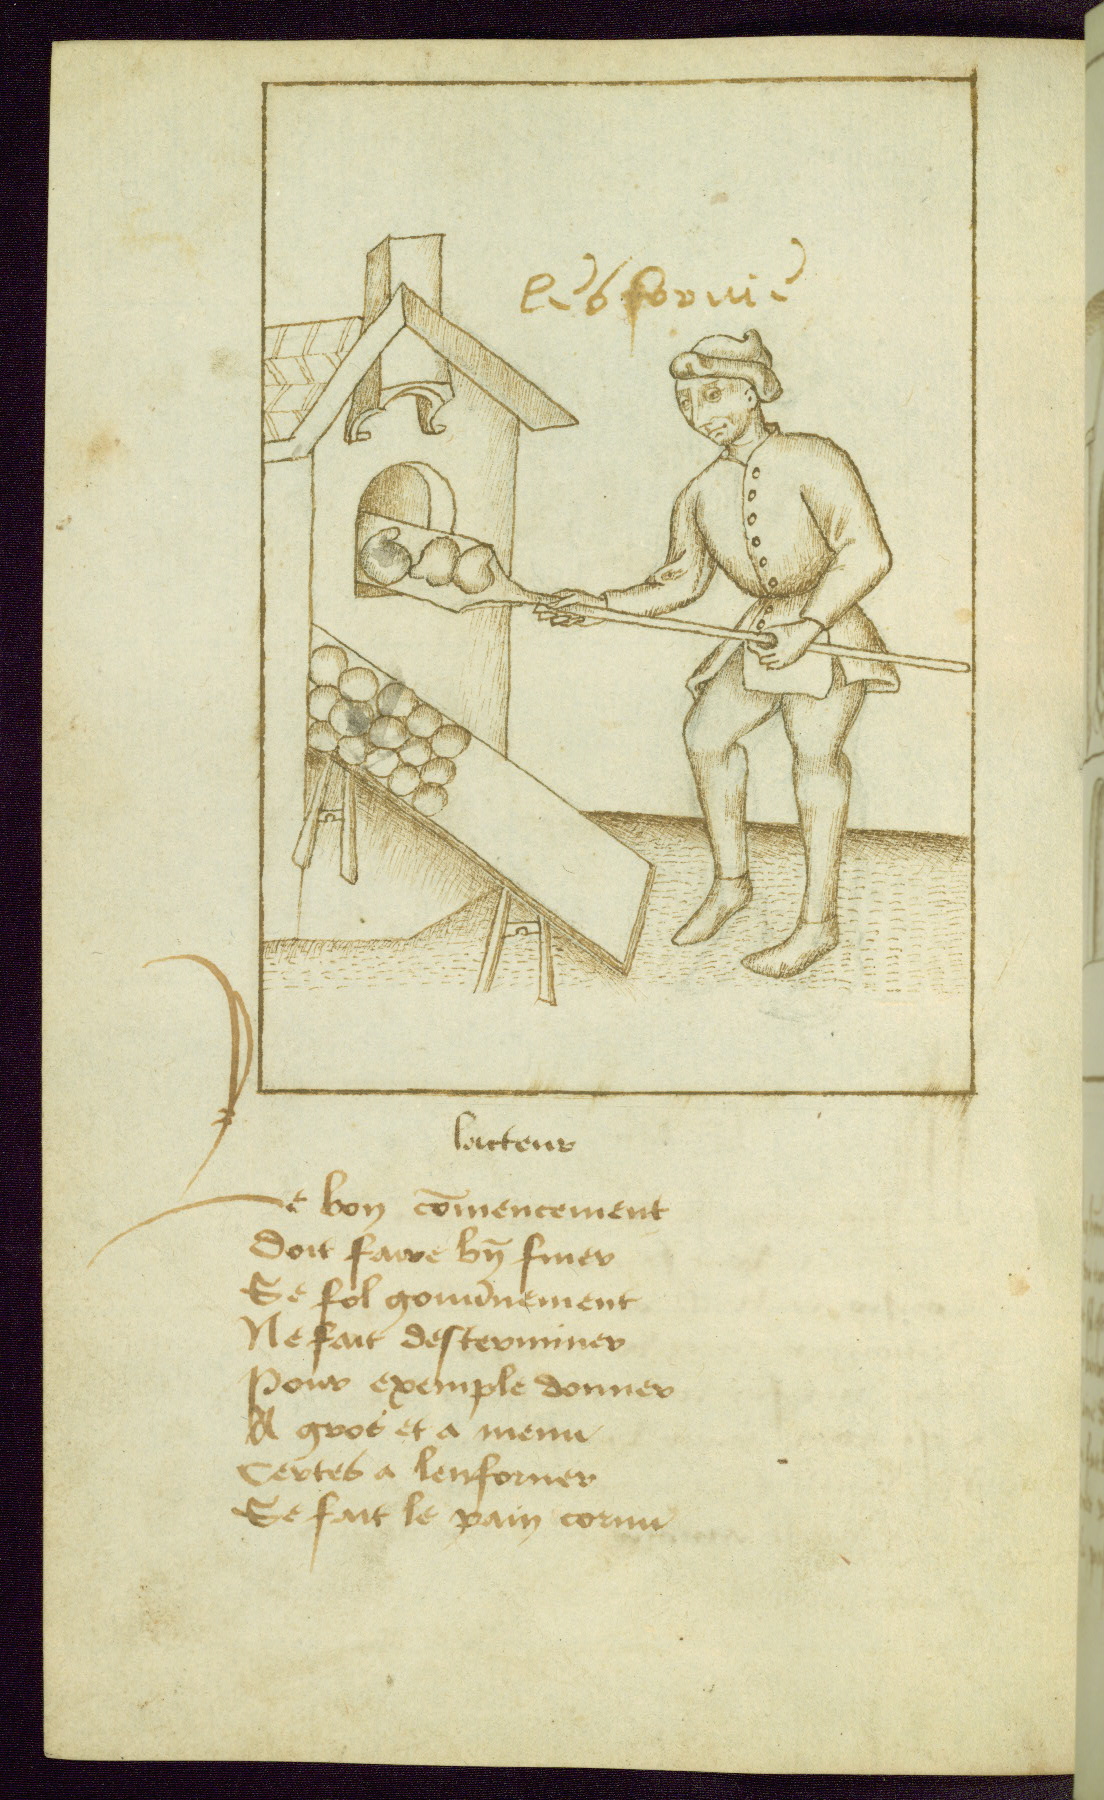 lacteur
De bon cōmencement
Doit faire bn̄ finer
Se fol gouũnement
Ne fait desterminer
Pour exemple donner
A gros et a menu
Certes a lenforner
Se fait le pain cornu